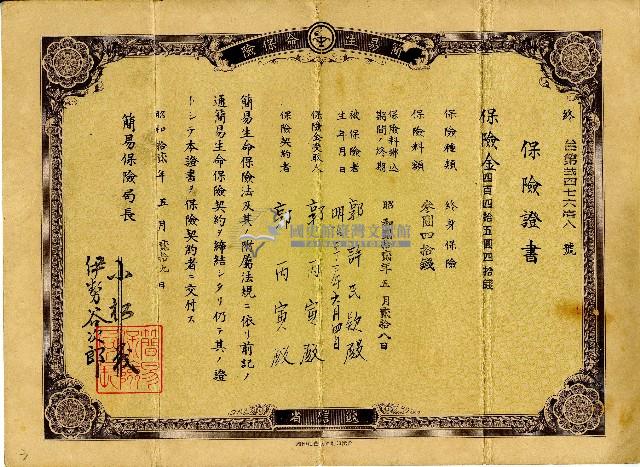 簡易生命保險
終 台第弐四七六
號
保險證書
保險金四百四拾五圓四拾錢
保險種類 終身保險
保險料額 參圓四拾錢
保險料拂込期間ノ終期 昭和 年五月貳拾八日
被保險者 郭許氏 殿
生年月日 明治 年六月四日
保險金受取人 郭丙寅殿
保險契約者 郭丙寅殿
簡易生命保險法及其ノ附屬法規ニ依リ前記ノ
通簡易生命保險契約ヲ締結シタリ仍テ其ノ證
トシテ本證書ヲ保險契約者ニ交付ス
昭和拾 年五月貳拾九日
簡易保險局長
小松
伊勢谷次郎
遞信省
國史館臺灣文獻館